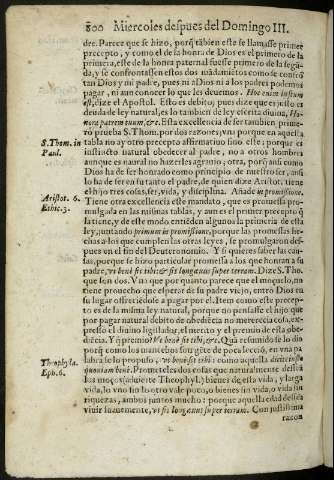 800 Miercoles despues del Domingo III.
dre. Parece que se hizo, porq̃ tãbien este se llamasse primer
precepto, y como el de la honra de Dios es el primero de la
primera, este de la honra paternal fuesse primero de la segũ-
da, y se confrontassen estos dos mãdamiẽtos como se confrõ
tan Dios y mi padre, pues ni a Dios ni a los padres podemos
pagar, ni aun conocer lo que les deuemos. Hoc enim iustum
est, dize el Apostol. Esto es debito, pues dize que es justo es
deuda de ley natural, es lo tambien de ley escrita diuina, Ho-
nora patrem tuum, &c. Esta excelencia de ser tambien prime-
S. Thom. in
Paul.
ro prueba S. Thom. por dos razones, vna porque en aquesta
tabla no ay otro precepto affirmatiuo sino este: porque es
instincto natural obedecer al padre, no a otros hombres
aunque es naural no hazerles agrauio, otra, porq̃ ansi como
Dios ha de ser honrado como principio de nuestro ser, ansi
lo ha de ser en su tanto el padre, de quien dize Aristot. tiene
Aristot. 6.
Ethic. 3.
el hijo tres cosas, ser, vida, y disciplina. Añade in promissione,
Tiene otra excellencia este mandato, que es promessa pro-
mulgada en las mismas tablas, y aun es el primer precepto q̃
la tiene, y de este modo entiẽden algunos la primeria de esta
ley, juntando primum in promissione, porque las promessas he-
chas a los que cumplen las otras leyes, se promulgaron des-
pues en el fin del Deuteronomio. Y si quieres saber las cau-
sas, porque se hizo particular promessa a los que honran a su
padre, vt bene sit tibi: & sis longæuus super terram. Dize S. Tho.
que son dos. Vna que por quanto parece que el moçuelo, no
tiene prouecho que esperar de su padre viejo, entrò Dios en
su lugar offreciendose a pagar por el. Item como este precep-
to es de la misma ley natural, porque no pensasse el hijo que
por pagar natural debito de obediẽcia no merecerìa cosa, ex-
presso el diuino legislador, el merito y el premio de esta obe-
diẽcia. Y q̃ premio? Vt benè sit tibi, &c. Quã resumido se lo dio
porq̃ como los mancebos son gẽte de poca lecciõ, en vna pa
labra se lo propuso, vt bene sit tibi: como aquella dicite iusto
quoniam benè. Prometeles dos cosas que naturalmente dessea
Theophyla.
Eph. 6.
los moços (aduierte Theophyl.) bienes de esta vida, y larga
vida, lo vno sin lo otro vale poco, o vida sin bienes, o vida sin
riquezas, ambos juntos mucho: porque aquella edad dessea
viuir luengamente, vt sis longæuus super terram. Con justissima
razon